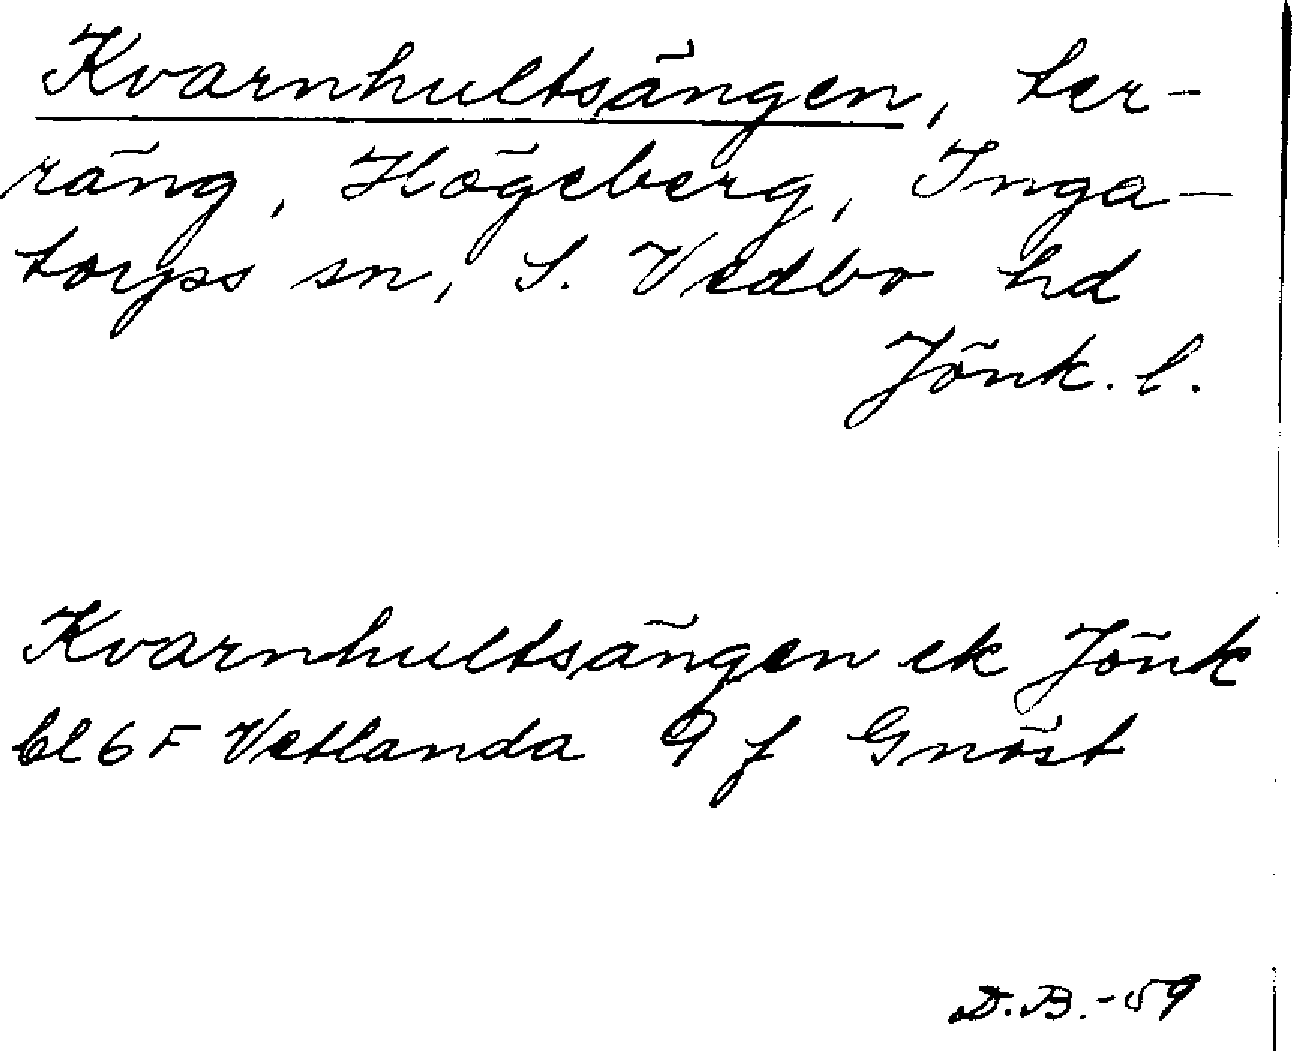 Kvarnhultsängen, ter-
räng, Högeberg, Inga-
torps sn, S. Vedbo hd
Jönk. l.
Kvarnhultsängen ek Jönk
bl 6 F Vetlanda 9 f Gnöst
D.B.-59